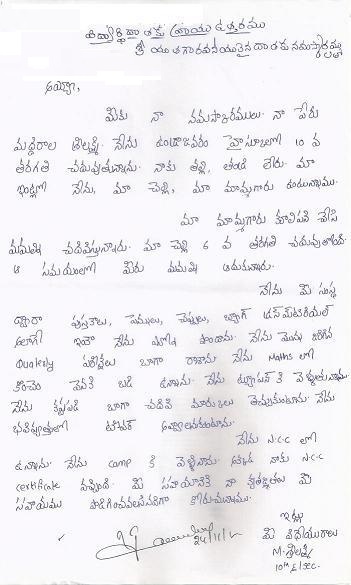 విద్యార్థి దాతకు వ్రాయు ఉత్తరము
శ్రీ యుత గౌరవనీయులైన దాతకు నమస్కారములు
అయ్యా,
మీకు నా నమస్కారములు. నా పేరు
మద్దిరాల శ్రీలక్ష్మి. నేను ఉండాజవరం హైస్కూలులో 10 వ
తరగతి చదువుతున్నాను. నాకు తల్లి, తండ్రి లేరు. మా
ఇంట్లో నేను, మా చెల్లి, మా మామ్మగారు ఉంటున్నాము.
మా మామ్మగారు కూలిపని చేసి
మమ్మల్ని చదివిస్తున్నారు. మా చెల్లి 6 వ తరగతి చదువుతోంది.
ఆ సమయంలో మీరు మమ్మల్ని ఆదుకున్నారు.
నేను మీ సంస్థ
ద్వారా పుస్తకాలు, పెన్నులు, చెప్పులు,
ఇంకా నేను పొందాను. నేను మొన్న జరిగిన
Quaterly పరీక్షలు బాగా రాశాను. నేను Maths లో
కొంచెం వెనకబడి ఉన్నాను. నేను ట్యూషన్ కి వెళ్తున్నాను.
నేను కష్టపడి బాగా చదివి మార్కులు తెచ్చుకుంటాను. నేను
భవిష్యత్తులో టీచర్ అవ్వాలనుకుంటున్నాను.
నేను N.C.C లో
ఉన్నాను. నేను camp కి వెళ్ళినాను. అక్కడ నాకు N.C.C
certificate వచ్చింది. మీ సహాయానికి నా కృతజ్ఞతలు మీ
సహాయము కోరుచున్నాను.
ఇట్లు
మీ విధేయురాలు
M. శ్రీలక్ష్మి
10th E/sec.